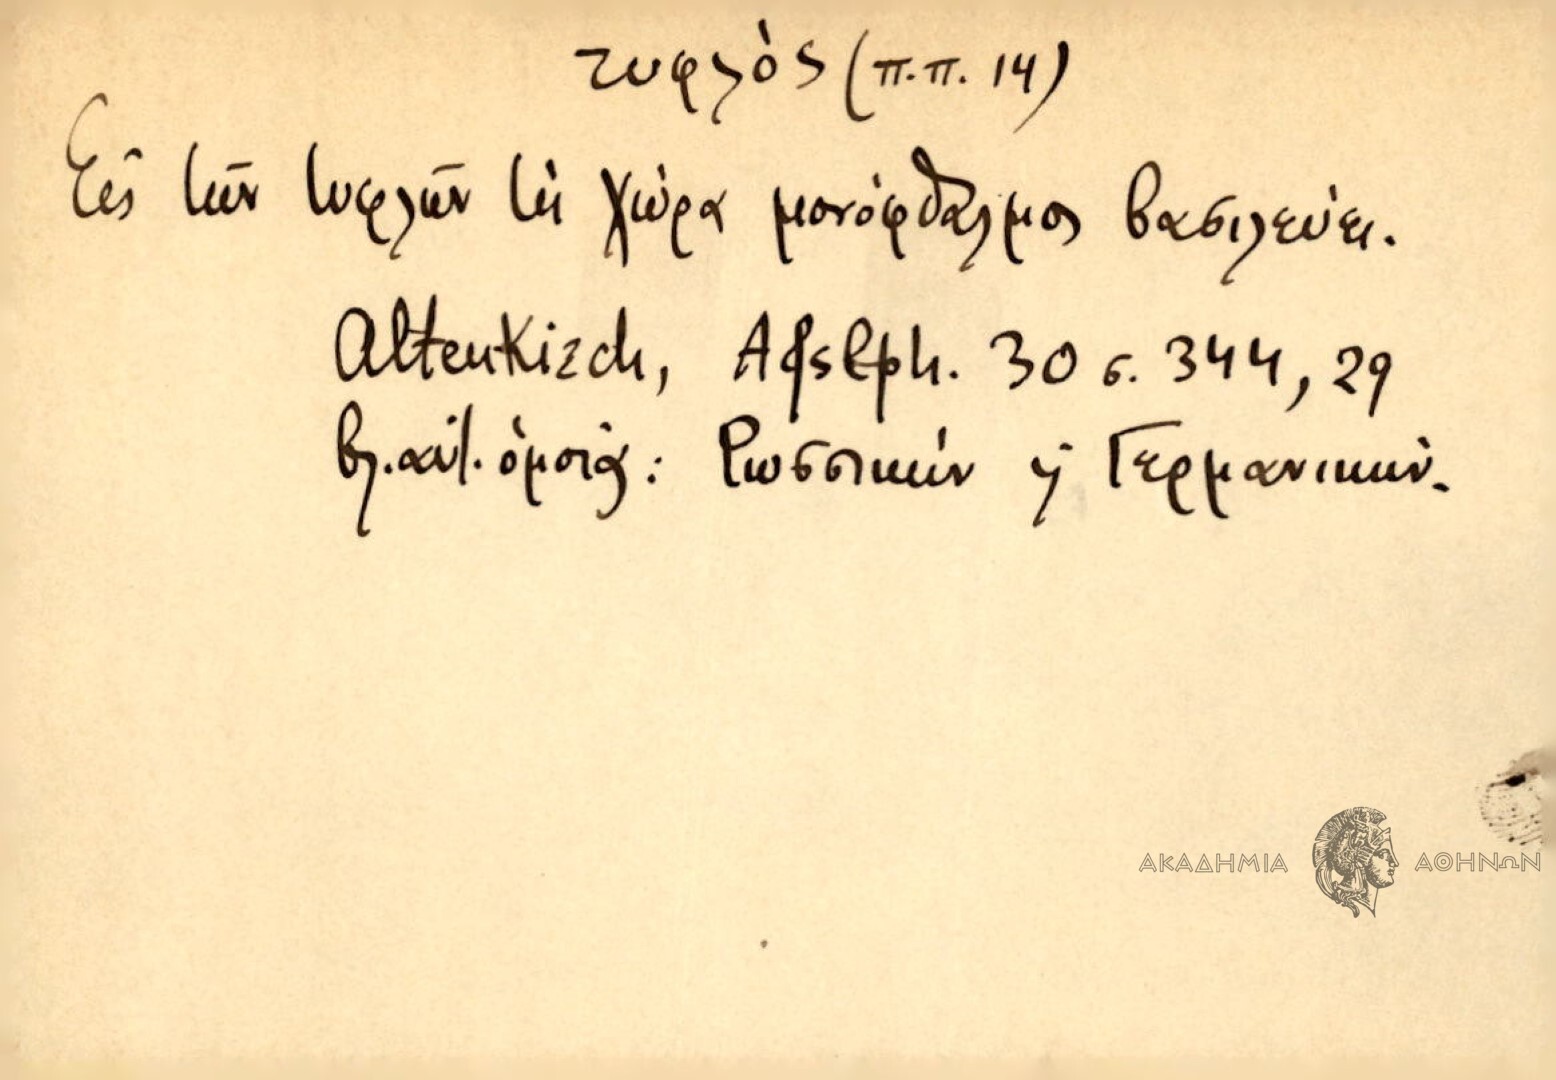 τυφλὸς (π.π. 14)
Εἰς τῶν τυφλῶν τὴ χώρα μονόφθαλμος βασιλεύει.
Altenkirch, Afslph. 30 σ. 344, 29
βλ. αὐτ. ὁμοιὰ: Ρωσσικὴν ἢ Γερμανικὴν.
ΑΚΑΔΗΜΙΑ ΑΘΗΝΩΝ